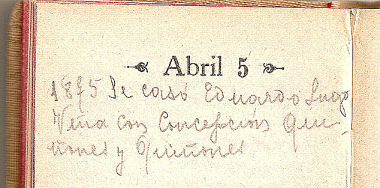 Abril 5
1895 Se casó Eduardo Lugo
Viña con Concepción Qui-
ñones y Quiñones